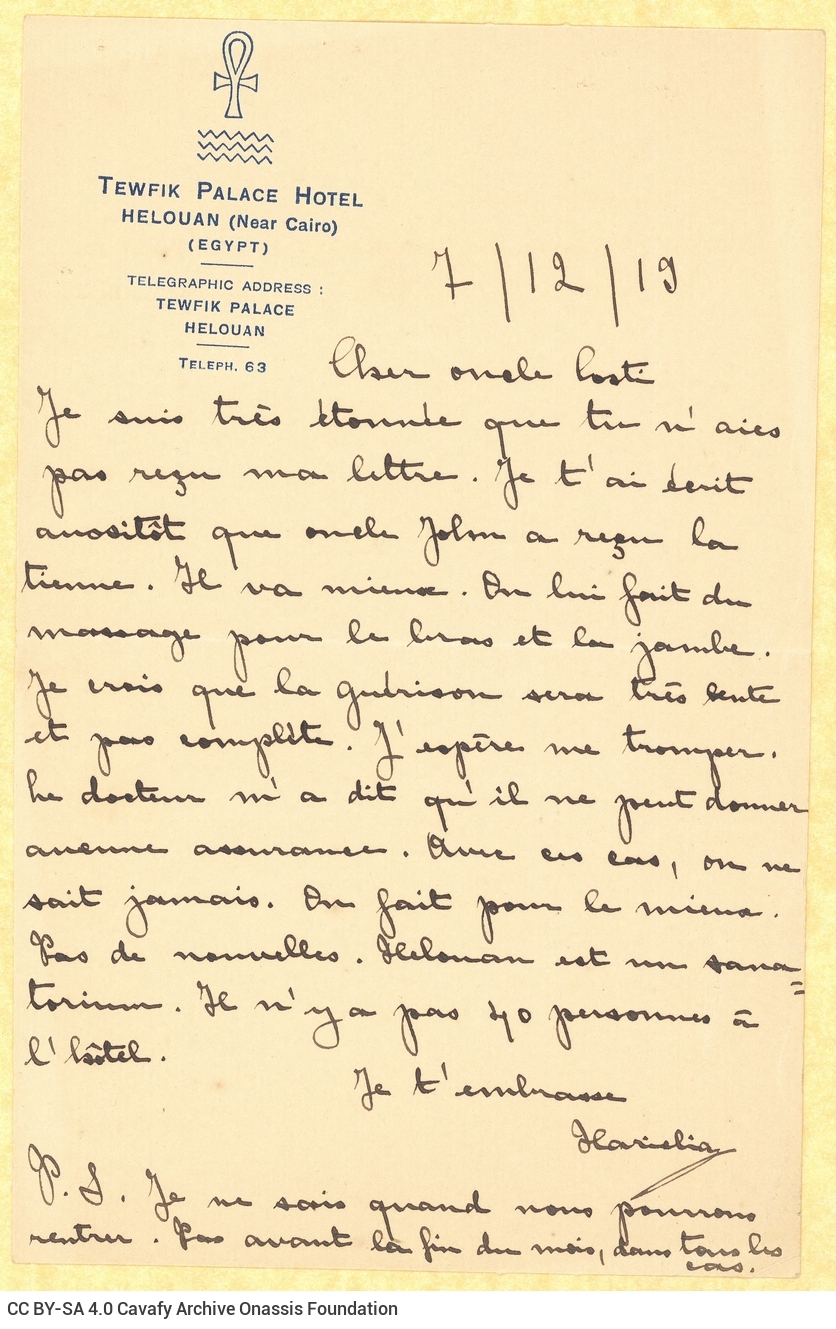 TEWFIK PALACE HOTEL
HELOUAN (Near Cairo)
(EGYPT)
TELEGRAPHIC ADDRESS :
TEWFIK PALACE
HELOUAN
TELEPH. 63
7 / 12 / 19
Cher oncle Costi
Je suis très étonnée que tu n'aies
pas reçu ma lettre. Je t'ai écrit
aussitôt que oncle John a reçu la
tienne. Il va mieux. On lui fait du
massage pour le bras et la jambe.
Je crois que la guérison sera très lente
et pas complète. J'espère me tromper.
Le docteur m'a dit qu'il ne peut donner
aucune assurance. Avec ces cas, on ne
sait jamais. On fait pour le mieux.
Pas de nouvelles. Helouan est un sana=
torium. Il n'y a pas 40 personnes à
l'hôtel.
Je t'embrasse
Hariclia
P.S. Je ne sais quand nous pourrons
rentrer. Pas avant la fin du mois, dans tous les
cas.
CC BY-SA 4.0 Cavafy Archive Onassis Foundation